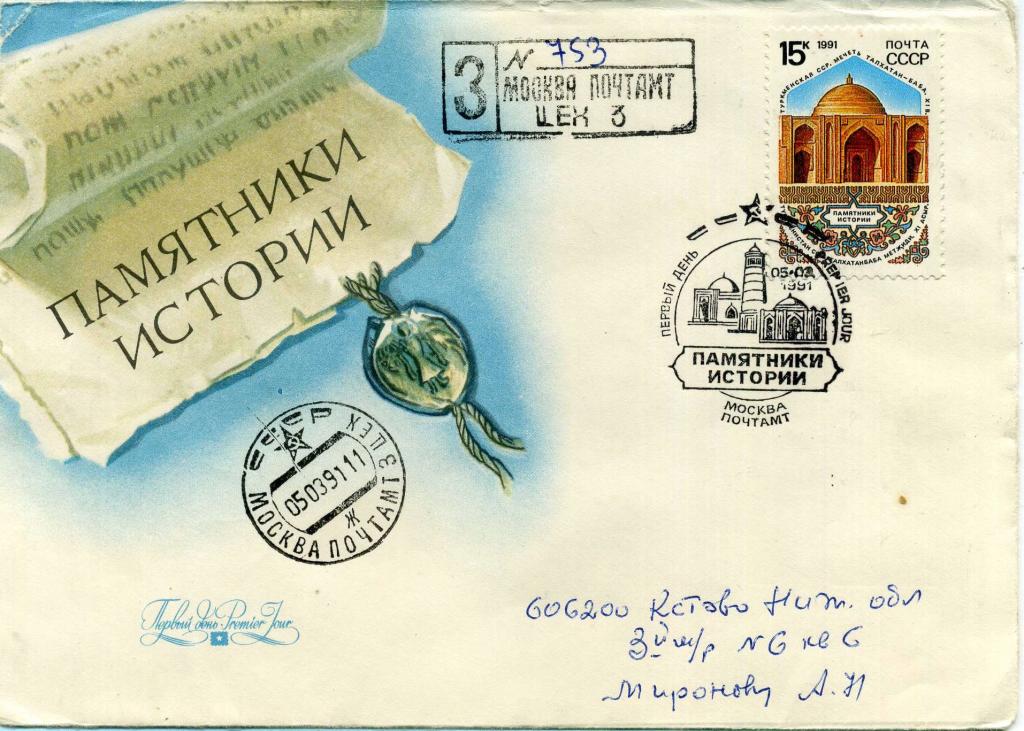 ПАМЯТНИКИ
ИСТОРИИ
З
N 753
МОСКВА ПОЧТАМТ
ЦЕХ 3
15К 1991 ПОЧТА
СССР
ТУРКМЕНСКАЯ ССР. МЕЧЕТЬ ТАЛХАТАН-БАБА.
ПАМЯТНИКИ
ИСТОРИИ
ПЕРВЫЙ ДЕНЬ
PREMIER JOUR
05.03.
1991
ПАМЯТНИКИ
ИСТОРИИ
МОСКВА
ПОЧТАМТ
СССР
05039111
Ж
МОСКВА ПОЧТАМТ 3 ЦЕХ
Первый день · Premier Jour
606200 Кстово Ниж. обл
3й м/р N6 кв 6
Миронову А.Н